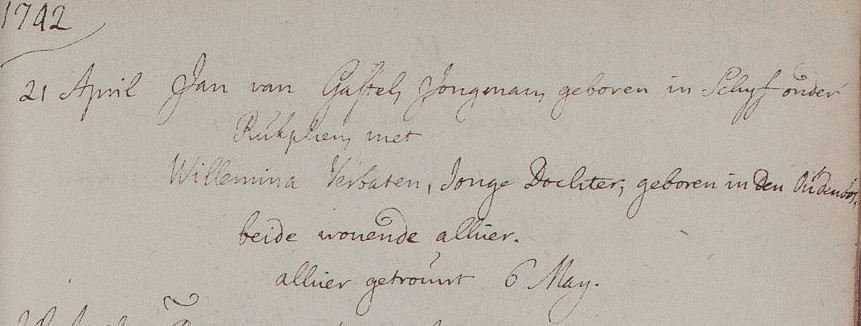 1742
21 April Jan van Gastel, Jongman, geboren in Schyf onder
Rukphen, met
Willemina Verbaten, Jonge Dochter, geboren in den Oudenbos,
beide wonende alhier.
alhier getrouwt 6 May.